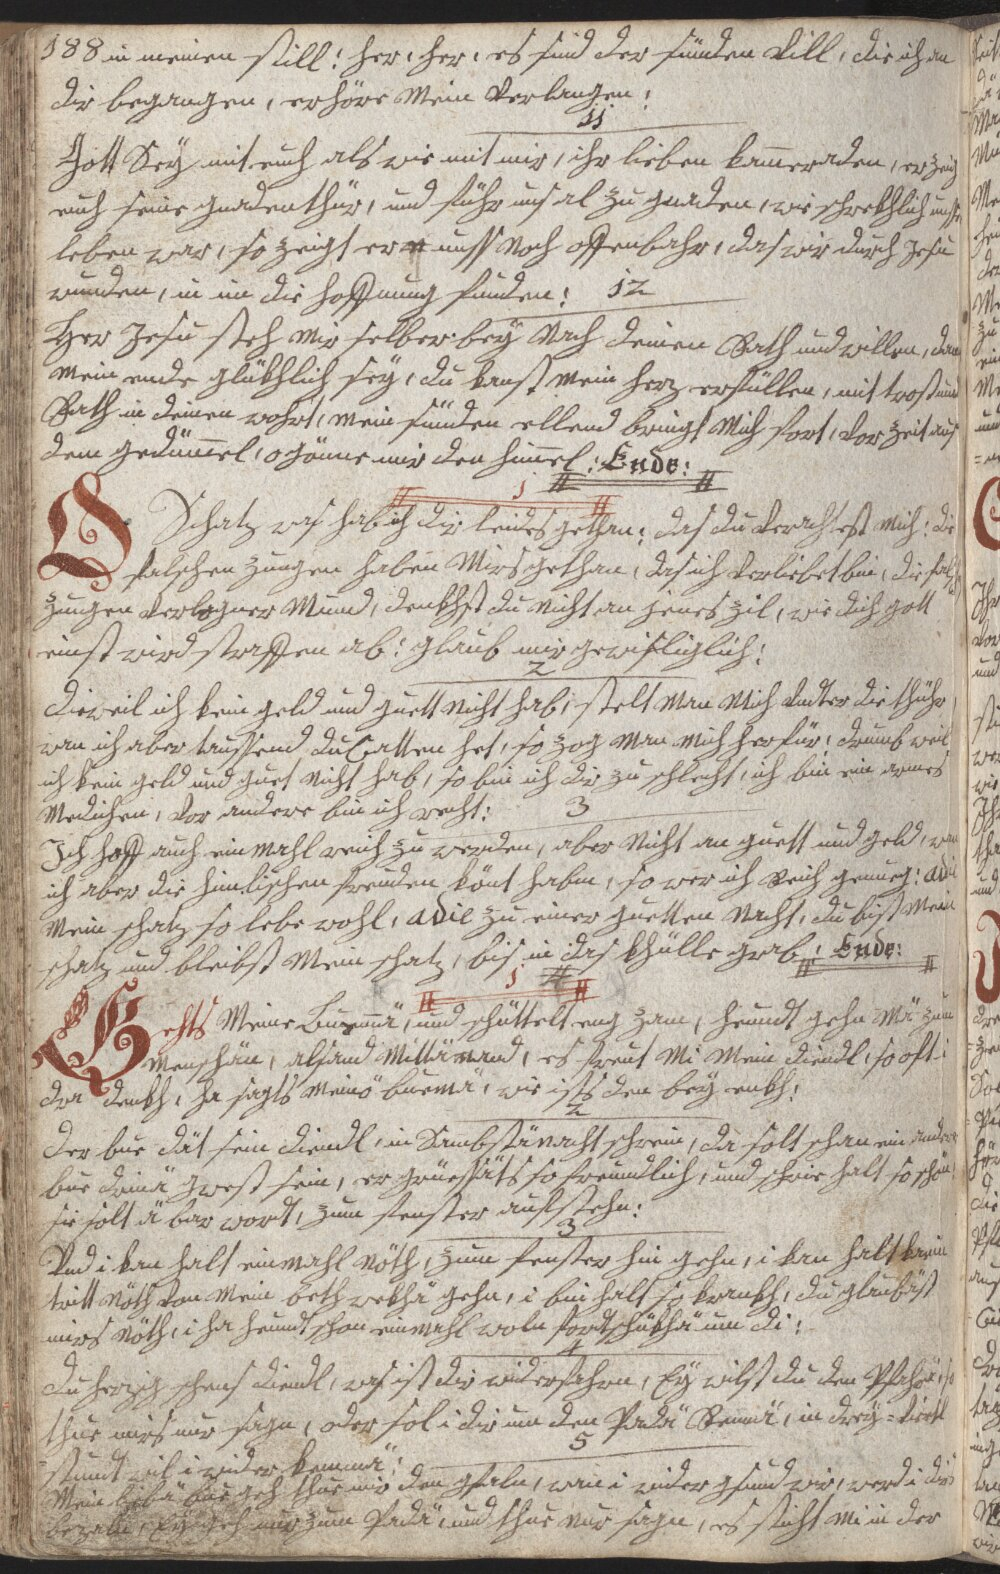 188 in meinen still: her, her, es sind der sünden Vill, die ich an
dir begangen, erhöre Mein Verlangen:
11
Gott Sey mit euch als wie mit mir, ihr lieben kammeraden, er zeig
euch seine gnadenthür, und führ uns al zu gnaden, wie schrekhlich unser
leben war, so zeigt er uns Noch offenbahr, das wir durch Jesu
wunden, in im die hoffnung funden: 12
Her Jesu steh Mir selber bey Nach deinen Rath und willen, das
Mein ende glükhlich sey, du kanst Mein herz erfüllen, mit trost und
Rath in deinen wohrt, Mein sünden ellend bringt Mich fort, vor Zeit aus
dem gedümmel, o gönne mir den himel: Ende:
1
O Schatz was hab ich dir leides gethan: das du Verachtest Mich: die
falschen zungen haben Mirs gethan, das ich Verliebet bin, die fals
zungen Verlogner Mund, denkhst du Nicht an jenes zil, wie dich gott
einst wird straffen ab: glaub mir gewisliglich:
2
dieweil ich kein geld und guett Nicht hab, stelt Man Mich hinter die thühr,
wan ich aber taussend duCatten het, so zog Man Mich herfür: drumb weil
ich kein geld und guet Nicht hab, so bin ich dir zu schlecht, ich bin ein armes
Medichen, Vor andere bin ich recht: 3
Ich hoff auch ein Mahl reich zu werden, aber Nicht an guett und geld, wan
ich aber die himlischen freuden könt haben, so wer ich Reich genueg: adie
Mein schatz so lebe wohl, adie zu einer guetten Nacht, du bist Mein
schatz und bleibst Mein schatz, bis in das khülle grab: Ende:
1
Gehts Meine Buemä, und schüttelt eng zam, heundt gehn Mä zum
Menschän, alsand Mittämand, es freut Mi Mein diendl, so oft i
dra denkh, ha sagts Meinö buemä, wie ists den bey enkh:
2
der bue dät sein diendl, in Sambstänacht schrein, da solt schan ein andere
bue drinä gwest sein, er grüessäts so freundlich, und schrie halt so schön,
sie solt ä bar wordt, zum fenster aufstehn:
3
Und i kan halt ein mahl Nöth, zum fenster hin gehn, i kan halt kein
tritt Nöth Von Mein beth wekhä gehn, i bin halt so krankh, du glaubäst
mirs Nöth, i ha heundt schon ein mahl woln fortschükhä um di:
4
du herzig schens diendl, was ist dir widerfahrn, Ey wilst du den Pfahrä, so
thue mirs nur sagn, oder sol i dir um den Badä Rennä, in drey= Viertl
=stundt wil i wider kemmä:
5
Mein liebä bue geh thue mir den gfaln, wan i wider gsund wir, werd i dirs
bezaln, Ey geh nur zum Badä, und thue nur sagn, es sticht Mi in der